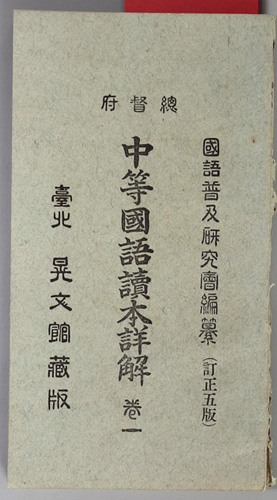 總督府
國語普及研究會編纂（訂正五版）
中等國語讀本詳解 卷一
臺北 晃文館藏版